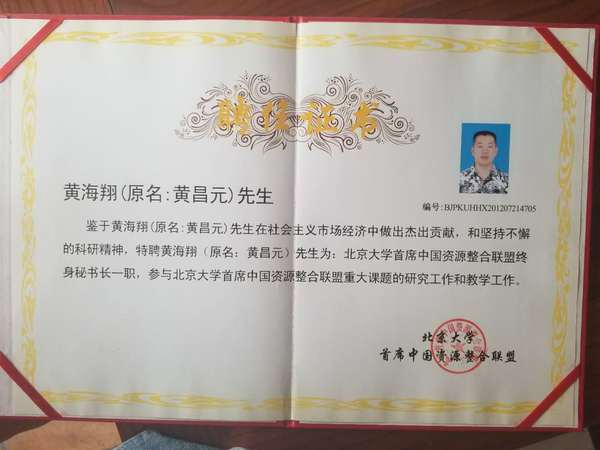 聘任证书
黄海翔(原名:黄昌元)先生
编号:BJPKUHHX201207214705
鉴于黄海翔(原名:黄昌元)先生在社会主义市场经济中做出杰出贡献,和坚持不懈
的科研精神,特聘黄海翔(原名:黄昌元)先生为:北京大学首席中国资源整合联盟终
身秘书长一职,参与北京大学首席中国资源整合联盟重大课题的研究工作和教学工作。
北京大学
首席中国资源整合联盟